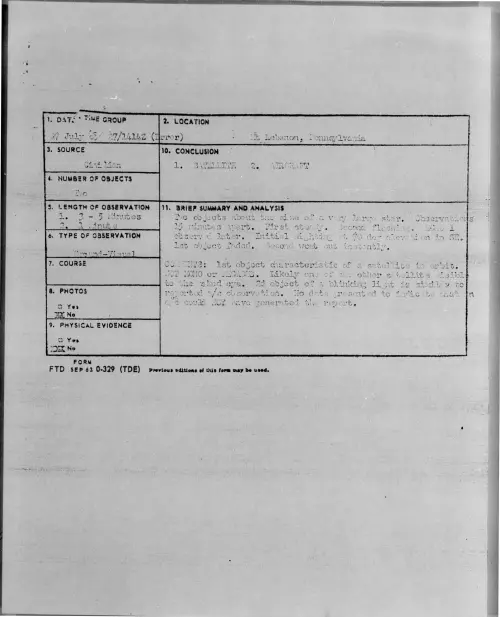 1. DATE - TIME GROUP
2. LOCATION
27 July 65 27/1414Z (Error)
Mt Lebanon, Pennsylvania
3. SOURCE
Civilian
10. CONCLUSION
1. SATELLITE 2. AIRCRAFT
4. NUMBER OF OBJECTS
Two
5. LENGTH OF OBSERVATION
1. 3 - 5 Minutes
2. Minute
11. BRIEF SUMMARY AND ANALYSIS
Two objects about the size of a very large star. Observations
15 minutes apart. First steady. Second flashing.
observed later. Initial sighting 90 deg elevation in
1st object faded. Second went out instantly.
6. TYPE OF OBSERVATION
Ground-Visual
7. COURSE
COMMENTS: 1st object characteristic of a satellite in orbit.
NOT ECHO or Likely one of the other satellites visible
to the naked eye. 2d object of a blinking light is similar to
reported a/c observation. No data presented to indicate that an
a/c could NOT have generated the report.
8. PHOTOS
□ Yes
XX No
9. PHYSICAL EVIDENCE
□ Yes
XX No
FORM
FTD SEP 63 0-329 (TDE) Previous editions of this form may be used.